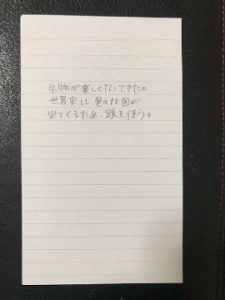 生物が楽しくなってきた。
世界史は色々な国が
出てくるため、頭を使う。